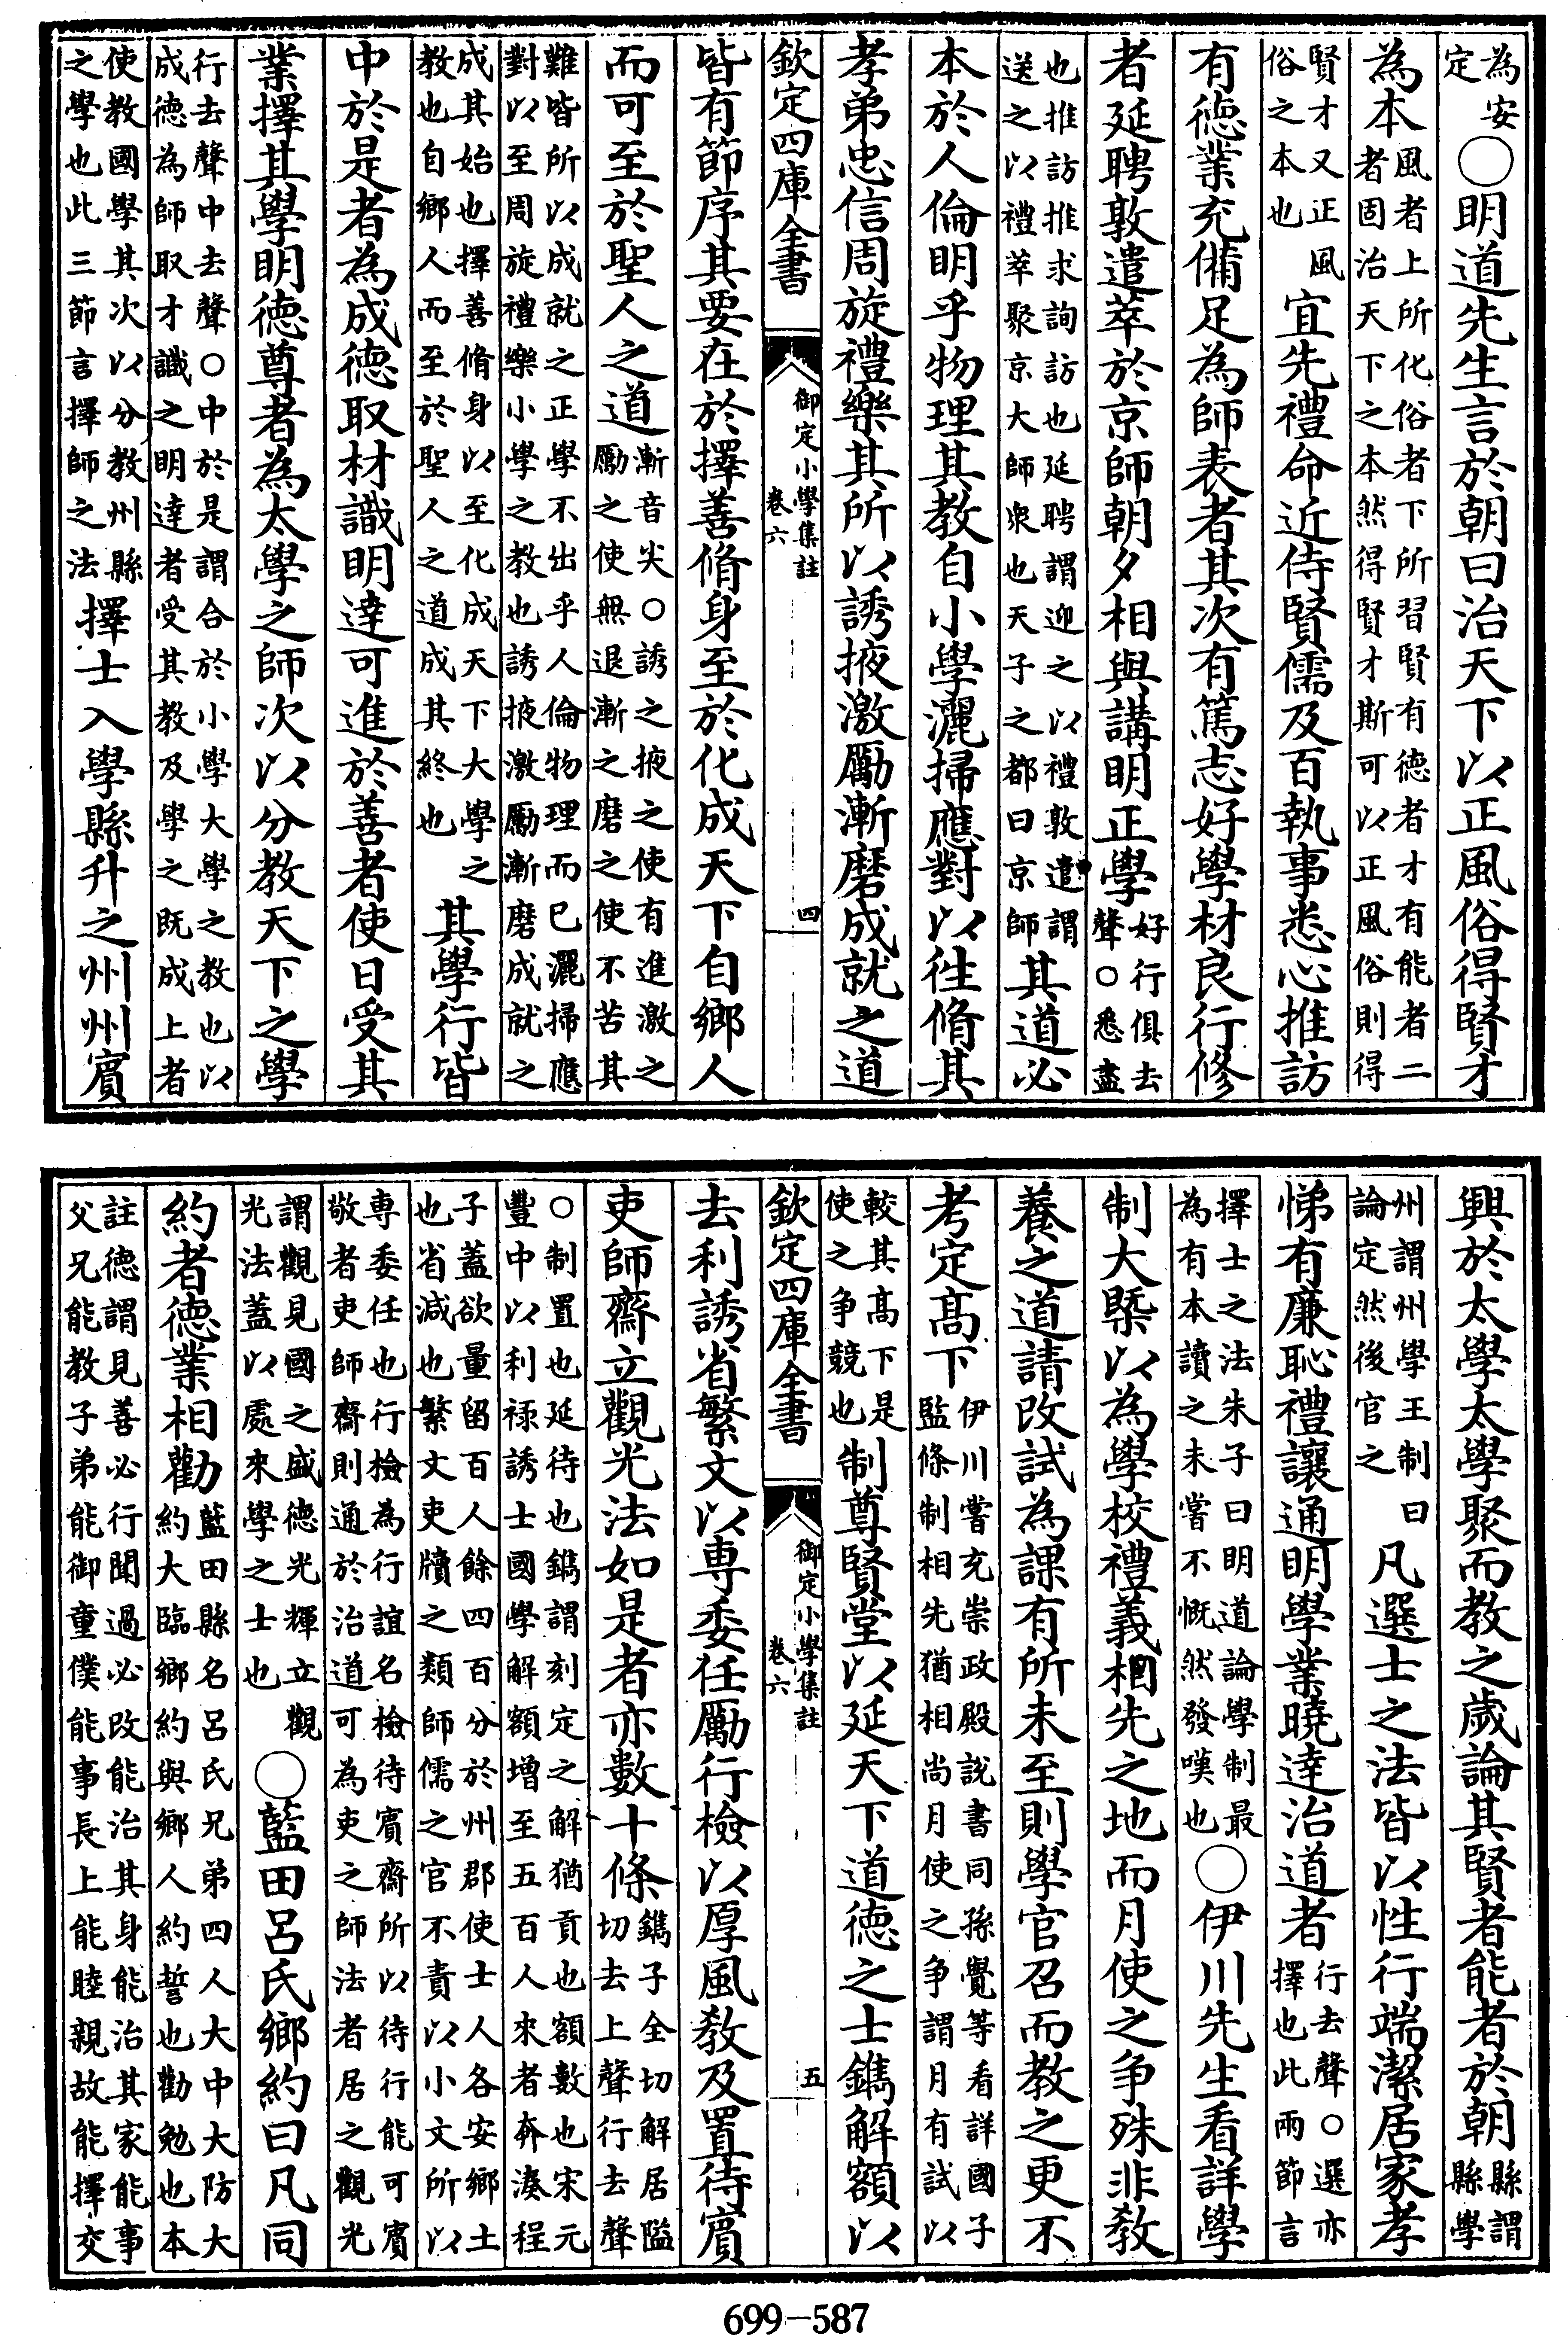 為安定○明道先生言於朝曰治天下以正風俗得賢才
為本風者上所化俗者下所習賢有德者才有能者二者固治天下之本然得賢才斯可以正風俗則得
賢才又正風俗之本也宜先禮命近侍賢儒及百執事悉心推訪
有德業充備足為師表者其次有篤志好學材良行修
者延聘敦遣萃於京師朝夕相與講明正學好行俱去聲○悉盡
也推訪推求詢訪也延聘謂迎之以禮敦遣謂送之以禮萃聚京大師衆也天子之都曰京師其道必
本於人倫明乎物理其教自小學灑掃應對以徃脩其
孝弟忠信周旋禮樂其所以誘掖激勵漸磨成就之道
欽定四庫全書 御定小學集註 卷六 四
皆有節序其要在於擇善脩身至於化成天下自鄉人
而可至於聖人之道漸音尖○誘之掖之使有進激之勵之使無退漸之磨之使不苦其
難皆所以成就之正學不出乎人倫物理而已灑掃應對以至周旋禮樂小學之教也誘掖激勵漸磨成就之
成其始也擇善脩身以至化成天下大學之教也自鄉人而至於聖人之道成其終也其學行皆
中於是者為成德取材識明達可進於善者使日受其
業擇其學明德尊者為太學之師次以分教天下之學
行去聲中去聲○中於是謂合於小學大學之教也以成德為師取才識之明達者受其教及學之既成上者
使教國學其次以分教州縣之學也此三節言擇師之法擇士入學縣升之州州賓
興於太學太學聚而教之歲論其賢者能者於朝縣謂縣學
州謂州學王制曰論定然後官之凡選士之法皆以性行端潔居家孝
悌有廉恥禮讓通明學業曉達治道者行去聲○選亦擇也此兩節言
擇士之法朱子曰明道論學制最為有本讀之未嘗不慨然發嘆也○伊川先生看詳學
制大槩以為學校禮義相先之地而月使之争殊非敎
養之道請改試為課有所未至則學官召而教之更不
考定髙下伊川嘗充崇政殿說書同孫覺等看詳國子監條制相先猶相尚月使之争謂月有試以
較其髙下是使之争競也制尊賢堂以延天下道德之士鐫解額以
欽定四庫全書 御定小學集註 卷六 五
去利誘省繁文以専委任勵行檢以厚風敎及置待賓
吏師齋立觀光法如是者亦數十條鐫子全切解居隘切去上聲行去聲
○制置也延待也鐫謂刻定之解猶貢也額數也宋元豐中以利禄誘士國學解額增至五百人來者奔湊程
子蓋欲量留百人餘四百分於州郡使士人各安鄉土也省減也繁文吏牘之類師儒之官不責以小文所以
専委任也行檢為行誼名檢待賓齋所以待行能可賓敬者吏師齋則通於治道可為吏之師法者居之觀光
謂觀見國之盛德光輝立觀光法蓋以處來學之士也○藍田呂氏鄉約曰凡同
約者德業相勸藍田縣名呂氏兄弟四人大中大防大約大臨鄉約與鄉人約誓也勸勉也本
註德謂見善必行聞過必改能治其身能治其家能事父兄能教子弟能御童僕能事長上能睦親故能擇交
699-587